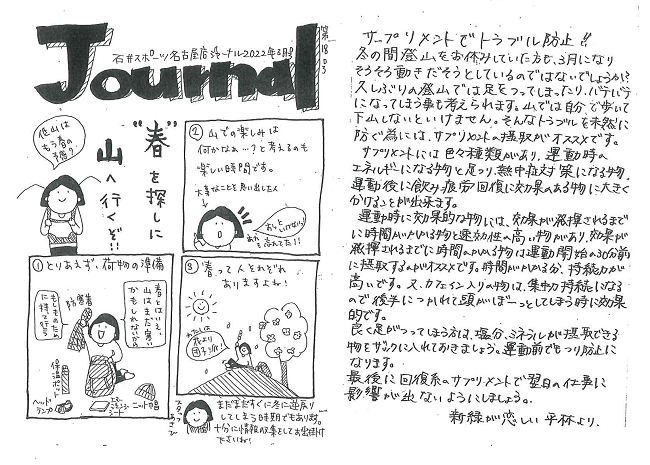 Journal
石井スポーツ名古屋店ジャーナル2022年3月号
第1803
"春"を探しに
山へ行くぞ!!
低山は
もう春の
予感?
①とりあえず、荷物の準備
防寒着
春とはいえ、
山はまだ寒い
かもしれないから
もしものため
に持て行こう
保温ポット
ヘッド
ランプ
チェーン
ニット帽
②山での楽しみは
何かなぁ…?と考えるのも
楽しい時間です。
大事なことを思い出したよ
おっと
いけない!
③春って人それぞれ
ありますよね!
わたしは
花より
団子派!
スタッフ
まだまだすぐに冬に逆戻り
してしまう時期でもあります。
十分に情報収集をしてお出掛け
下さいね!
サプリメントでトラブル防止!!
冬の間登山をお休みしていた方も、3月になり
そろそろ動きだそうとしているのではないでしょうか?
久しぶりの登山では足をつってしまったり、バテバテ
になってしまう事も考えられます。山では自分で歩いて
下山しないといけません。そんなトラブルを未然に
防ぐ為には、サプリメントの摂取がオススメです。
サプリメントには色々種類があり、運動時の
エネルギーになる物と足つり、熱中症対策になる物、
運動後に飲み疲労回復に効果のある物に大きく
分けることが出来ます。
運動時に効果的な物には、効果が発揮されるまで
に時間がかかる物と速効性の高い物があり、効果が
発揮されるまでに時間のかかる物は運動開始の30分前
に摂取するのがオススメです。時間がかかる分、持続力が
高いです。又、カフェイン入りの物は、集中力持続になる
ので後半につかれて頭がぼーっとしてしまう時に効果
的です。
良く足がつってしまう方は、塩分、ミネラルが摂取できる
物をザックに入れておきましょう。運動前でもつり防止に
なります。
最後に回復系のサプリメントで翌日の仕事に
影響が出ないようにしましょう。
新緑が恋しい 平林より、